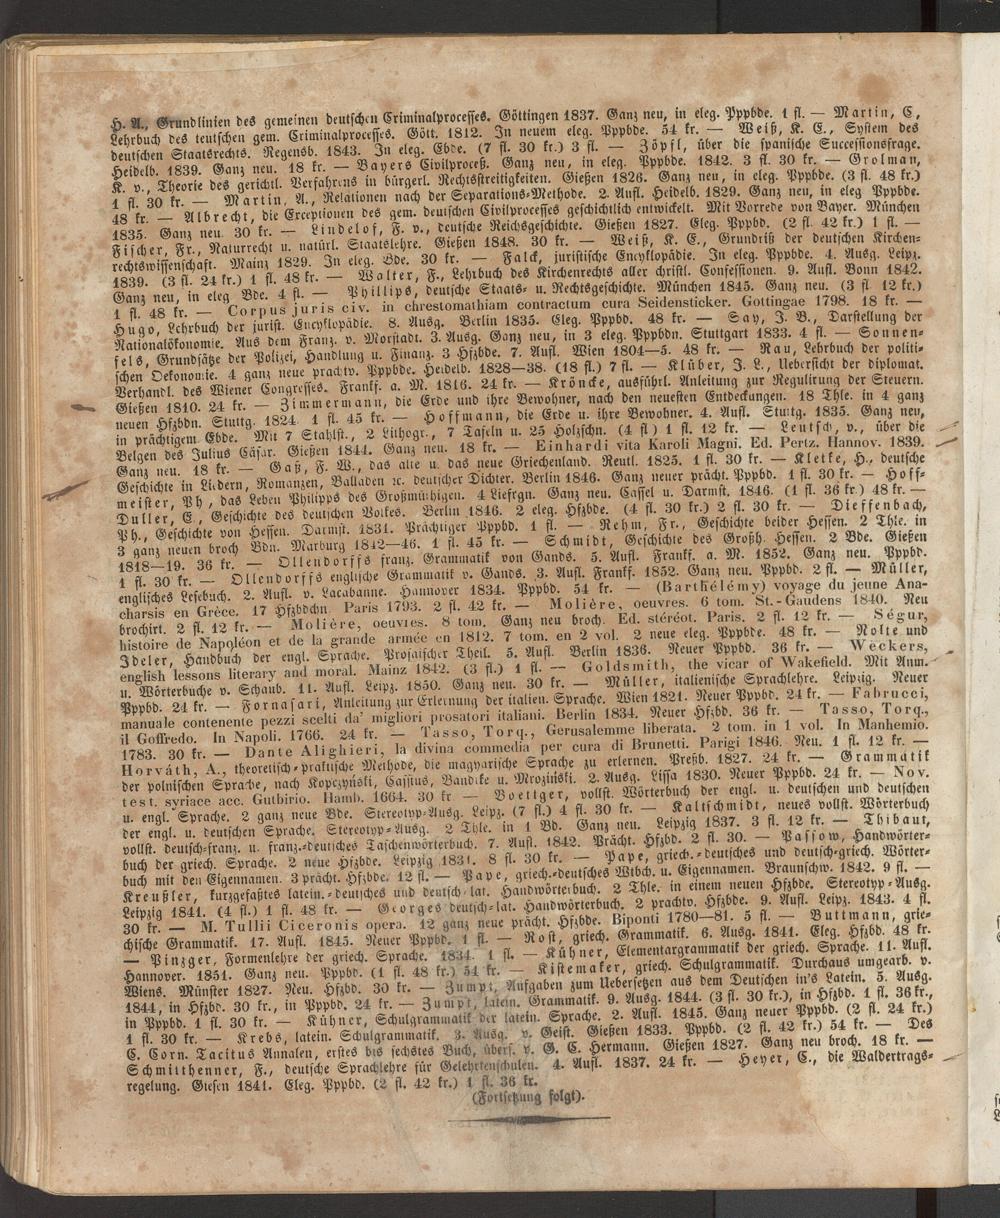 H. A., Grundlinien des gemeinen deutschen Criminalprocesses. Göttingen 1837. Ganz neu, in eleg. Pppbde. 1 fl. — Martin, C,
Lehrbuch des teutschen gem. Criminalprocesses. Gött. 1812. In neuem eleg. Pppbde. 54 kr. — Weiß, K. E., System des
deutschen Staatsrechts. Regensb. 1843. In eleg. Ebde. (7 fl. 30 kr.) 3 fl. — Zöpfl, über die spanische Successionsfrage.
Heidelb. 1839. Ganz neu. 18 kr. — Bayers Civilproceß. Ganz neu, in eleg. Pppbde. 1842. 3 fl. 30 kr. — Grolman,
K. v., Theorie des gerichtl. Verfahrens in bürgerl. Rechtsstreitigkeiten. Gießen 1826. Ganz neu, in eleg. Pppbde. (3 fl. 48 kr.)
1 fl. 30 kr. — Martin, A., Relationen nach der Separations-Methode. 2. Aufl. Heidelb. 1829. Ganz neu, in eleg Pppbde.
48 kr. — Albrecht, die Exceptionen des gem. deutschen Civilprocesses geschichtlich entwickelt. Mit Vorrede von Bayer. München
1835. Ganz neu. 30 kr. — Lindelof, F. v., deutsche Reichsgeschichte. Gießen 1827. Eleg. Pppbd. (2 fl. 42 kr.) 1 fl. —
Fischer, Fr., Naturrecht u. natürl. Staatslehre. Gießen 1848. 30 kr. — Weiß, K. E., Grundriß der deutschen Kirchen-
rechtswissenschaft. Mainz 1829. In eleg. Bde. 30 kr. — Falck, juristische Encyklopädie. In eleg. Pppbde. 4. Ausg. Leipz.
1839. (3 fl. 24 kr.) 1 fl. 48 kr. — Walter, F., Lehrbuch des Kirchenrechts aller christl. Confessionen. 9. Aufl. Bonn 1842.
Ganz neu, in eleg Bde. 4 fl. — Phillips, deutsche Staats- u. Rechtsgeschichte. München 1845. Ganz neu. (3 fl. 12 kr.)
1 fl. 48 kr. — Corpus juris civ. in chrestomathiam contractum cura Seidensticker. Gottingae 1798. 18 kr. —
Hugo, Lehrbuch der jurist. Encyklopädie. 8. Ausg. Berlin 1835. Eleg. Pppbd. 48 kr. — Say, J. B., Darstellung der
Nationalökonomie. Aus dem Franz. v. Morstadt. 3. Ausg. Ganz neu, in 3 eleg. Pppbdn. Stuttgart 1833. 4 fl. — Sonnen-
fels, Grundsätze der Polizei, Handlung u. Finanz. 3 Hfzbde. 7. Aufl. Wien 1804—5. 48 kr. — Rau, Lehrbuch der politi-
schen Oekonomie. 4 ganz neue prachtv. Pppbde. Heidelb. 1828—38. (18 fl.) 7 fl. — Klüber, J. L., Uebersicht der diplomat.
Verhandl. des Wiener Congresses. Frankf. a. M. 1816. 24 kr. — Kröncke, ausführl. Anleitung zur Regulirung der Steuern.
Gießen 1810. 24 kr. — Zimmermann, die Erde und ihre Bewohner, nach den neuesten Entdeckungen. 18 Thle. in 4 ganz
neuen Hfzbdn. Stuttg. 1824 1 fl. 45 kr. — Hoffmann, die Erde u. ihre Bewohner. 4. Aufl. Stuttg. 1835. Ganz neu,
in prächtigem Ebde. Mit 7 Stahlst., 2 Lithogr., 7 Tafeln u. 25 Holzschn. (4 fl) 1 fl. 12 kr. — Leutsch, v., über die
Belgen des Julius Cäsar. Gießen 1844. Ganz neu. 18 kr. — Einhardi vita Karoli Magni. Ed. Pertz. Hannov. 1839.
Ganz neu. 18 kr. — Gaß, F. W., das alte u. das neue Griechenland. Reutl. 1825. 1 fl. 30 kr. — Kletke, H., deutsche
Geschichte in Liedern, Romanzen, Balladen ꝛc. deutscher Dichter. Berlin 1846. Ganz neuer prächt. Pppbd. 1 fl. 30 kr. — Hoff-
meister, Ph, das Leben Philipps des Großmüthigen. 4 Liefrgn. Ganz neu. Cassel u. Darmst. 1846. (1 fl. 36 kr.) 48 kr. —
Duller, E, Geschichte des deutschen Volkes. Berlin 1846. 2 eleg. Hfzbde. (4 fl. 30 kr.) 2 fl. 30 kr. — Dieffenbach,
Ph., Geschichte von Hessen. Darmst. 1831. Prächtiger Pppbd. 1 fl. — Rehm, Fr., Geschichte beider Hessen. 2 Thle. in
3 ganz neuen broch Bdn. Marburg 1842—46. 1 fl. 45 kr. — Schmidt, Geschichte des Großh. Hessen. 2 Bde. Gießen
1818—19. 36 kr. — Ollendorffs franz. Grammatik von Gands. 5. Aufl. Frankf. a. M. 1852. Ganz neu. Pppbd.
1 fl. 30 kr. — Ollendorffs englische Grammatik v. Gands. 3. Aufl. Frankf. 1852. Ganz neu. Pppbd. 2 fl. — Müller,
englisches Lesebuch. 2. Aufl. v. Lacabanne. Hannover 1834. Pppbd. 54 kr. — (Barthélémy) voyage du jeune Ana-
charsis en Grèce. 17 Hfzbdchn. Paris 1793. 2 fl. 42 kr. — Molière, oeuvres. 6 tom. St.-Gaudens 1840. Neu
brochirt. 2 fl. 12 kr. — Molière, oeuvres. 8 tom. Ganz neu broch. Ed. stéréot. Paris. 2 fl. 12 kr. — Ségur,
histoire de Napoléon et de la grande armée en 1812. 7 tom. en 2 vol. 2 neue eleg. Pppbde. 48 kr. — Nolte und
Ideler, Handbuch der engl. Sprache. Prosaischer Theil. 5. Aufl. Berlin 1836. Neuer Pppbd. 36 kr. — Weckers,
english lessons literary and moral. Mainz 1842. (3 fl.) 1 fl. — Goldsmith, the vicar of Wakefield. Mit Anm.
u. Wörterbuche v. Schaub. 11. Aufl. Leipz. 1850. Ganz neu. 30 kr. — Müller, italienische Sprachlehre. Leipzig. Neuer
Pppbd. 24 kr. — Fornasari, Anleitung zur Erlernung der italien. Sprache. Wien 1821. Neuer Pppbd. 24 kr. — Fabrucci,
manuale contenente pezzi scelti da' migliori prosatori italiani. Berlin 1834. Neuer Hfzbd. 36 kr. — Tasso, Torq.,
il Goffredo. In Napoli. 1766. 24 kr. — Tasso, Torq., Gerusalemme liberata. 2 tom. in 1 vol. In Manhemio.
1783. 30 kr. — Dante Alighieri, la divina commedia per cura di Brunetti. Parigi 1846. Neu. 1 fl. 12 kr. —
Horváth, A., theoretisch-praktische Methode, die magyarische Sprache zu erlernen. Preßb. 1827. 24 kr. — Grammatik
der polnischen Sprache, nach Kopczyński, Cassius, Bandtke u. Mroziński. 2. Ausg. Lissa 1830. Neuer Pppbd. 24 kr. — Nov.
test. syriace acc. Gutbirio. Hamb. 1664. 30 kr — Boettger, vollst. Wörterbuch der engl. u. deutschen und deutschen
u. engl. Sprache. 2 ganz neue Bde. Stereotyp-Ausg. Leipz. (7 fl.) 4 fl. 30 kr. — Kaltschmidt, neues vollst. Wörterbuch
der engl. u. deutschen Sprache. Stereotyp-Ausg. 2 Thle. in 1 Bd. Ganz neu. Leipzig 1837. 3 fl. 12 kr. — Thibaut,
vollst. deutsch-franz. u. franz.-deutsches Taschenwörterbuch. 7. Aufl. 1842. Prächt. Hfzbd. 2 fl. 30. — Passow, Handwörter-
buch der griech. Sprache. 2 neue Hfzbde. Leipzig 1831. 8 fl. 30 kr. — Pape, griech.-deutsches und deutsch-griech. Wörter-
buch mit den Eigennamen. 3 prächt. Hfzbde. 12 fl. — Pape, griech.-deutsches Wtbch. u. Eigennamen. Braunschw. 1842. 9 fl. —
Kreußler, kurzgefaßtes latein.-deutsches und deutsch-lat. Handwörterbuch. 2 Thle. in einem neuen Hfzbde. Stereotyp-Ausg.
Leipzig 1841. (4 fl.) 1 fl. 48 kr. — Georges deutsch-lat. Handwörterbuch. 2 prachtv. Hfzbde. 9. Aufl. Leipz. 1843. 4 fl.
30 kr. — M. Tullii Ciceronis opera. 12 ganz neue prächt. Hfzbde. Biponti 1780—81. 5 fl. — Buttmann, grie-
chische Grammatik. 17. Aufl. 1845. Neuer Pppbd. 1 fl. — Rost, griech. Grammatik. 6. Ausg. 1841. Eleg. Hfzbd. 48 kr.
— Pinzger, Formenlehre der griech. Sprache. 1834. 1 fl. — Kühner, Elementargrammatik der griech. Sprache. 11. Aufl.
Hannover. 1851. Ganz neu. Pppbd. (1 fl. 48 kr.) 54 kr. — Kistemaker, griech. Schulgrammatik. Durchaus umgearb. v.
Wiens. Münster 1827. Neu. Hfzbd. 30 kr. — Zumpt, Aufgaben zum Uebersetzen aus dem Deutschen in's Latein. 5. Ausg.
1844, in Hfzbd. 30 kr., in Pppbd. 24 kr. — Zumpt, latein. Grammatik. 9. Ausg. 1844. (3 fl. 30 kr.), in Hfzbd. 1 fl. 36 kr.,
in Pppbd. 1 fl. 30 kr. — Kühner, Schulgrammatik der latein. Sprache. 2. Aufl. 1845. Ganz neuer Pppbd. (2 fl. 24 kr.)
1 fl. 30 kr. — Krebs, latein. Schulgrammatik. 3. Ausg. v. Geist. Gießen 1833. Pppbd. (2 fl. 42 kr.) 54 kr. — Des
C. Corn. Tacitus Annalen, erstes bis sechstes Buch, übers. v. G. C. Hermann. Gießen 1827. Ganz neu broch. 18 kr. —
Schmitthenner, F., deutsche Sprachlehre für Gelehrtenschulen. 4. Aufl. 1837. 24 kr. — Heyer, C., die Waldertrags-
regelung. Giesen 1841. Eleg. Pppbd. (2 fl. 42 kr.) 1 fl. 36 kr.
(Fortsetzung folgt).